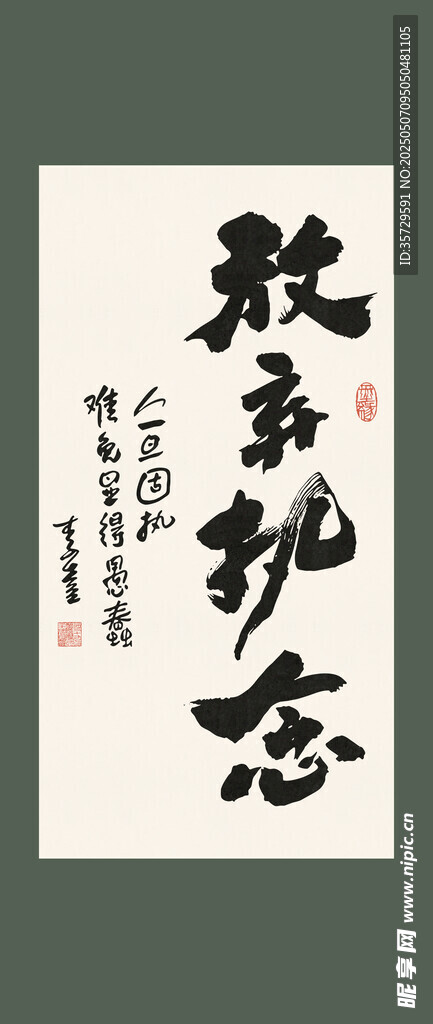 放弃执念
人一旦固执
难免显得愚蠢
ID:35729591 NO:20250507095050481105
昵享网 www.nipic.cn